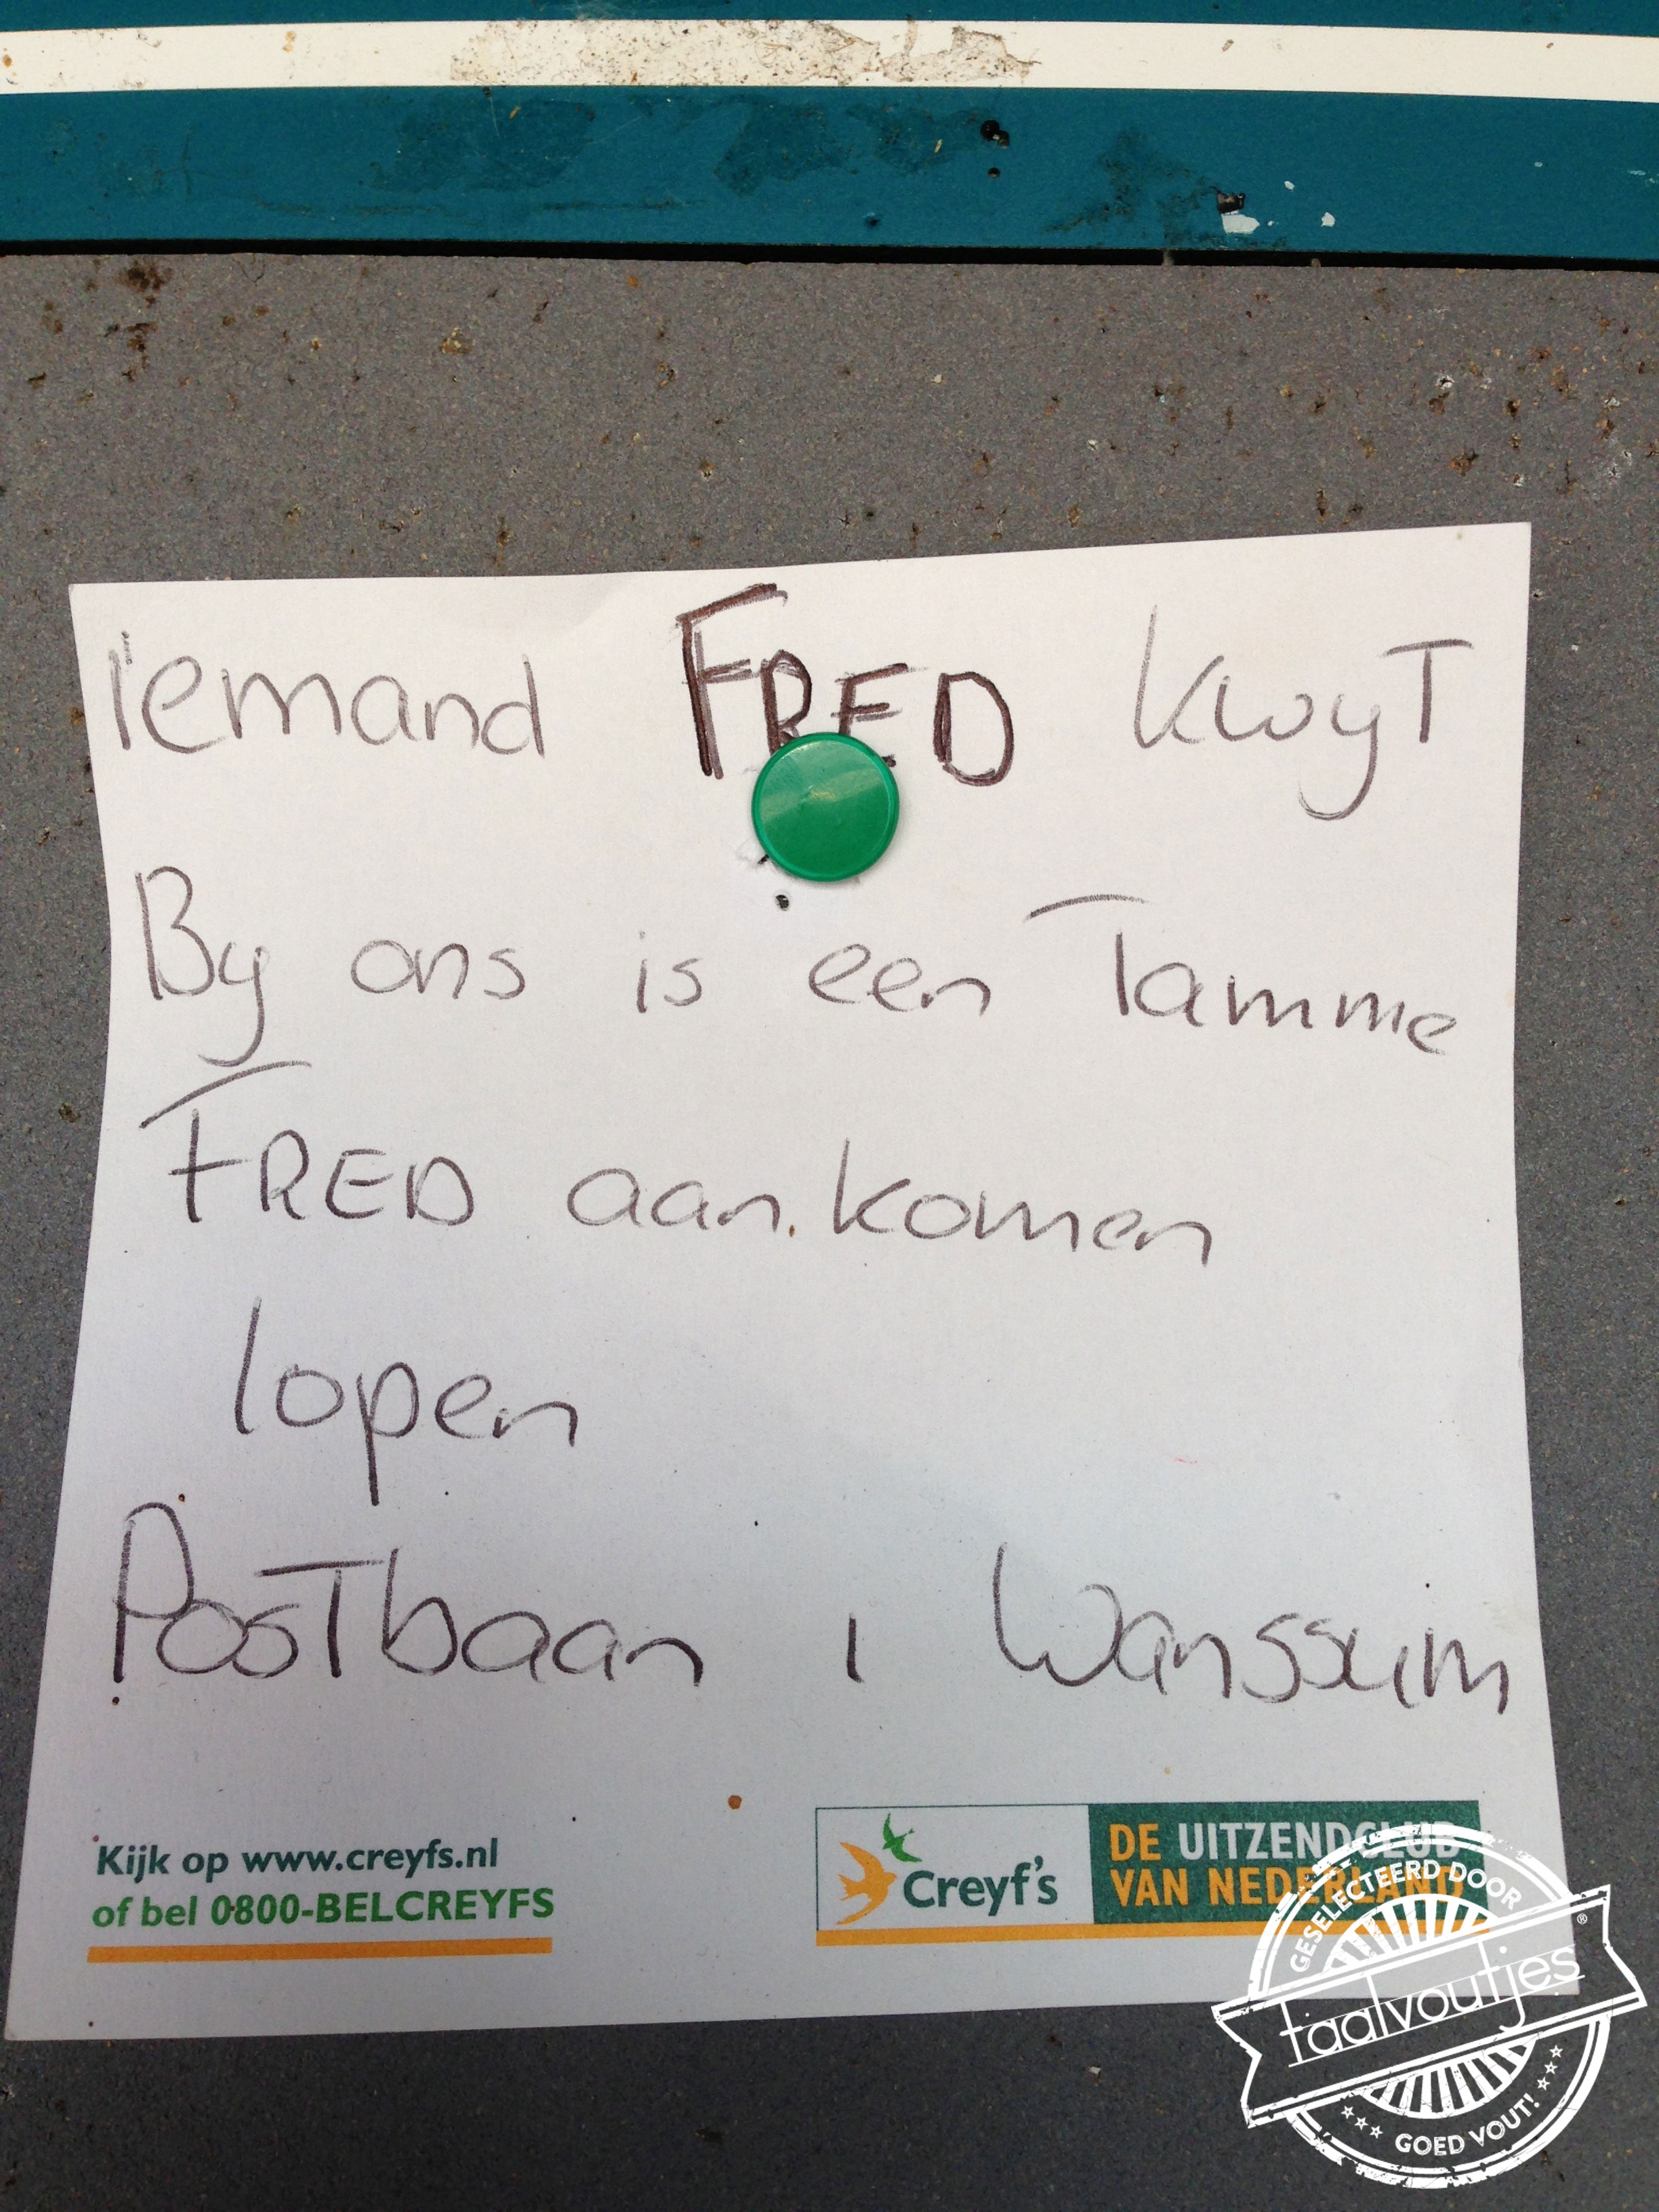 iemand FRED kwyT
By ons is een Tamme
FRED aan komen
lopen
PosTbaan 1 Wanssum
Kijk op www.creyfs.nl
of bel 0800-BELCREYFS
Creyf's
DE UITZENDCLUB
VAN NEDERLAND
GESELECTEERD DOOR
taalvoutjes®
GOED VOUT!